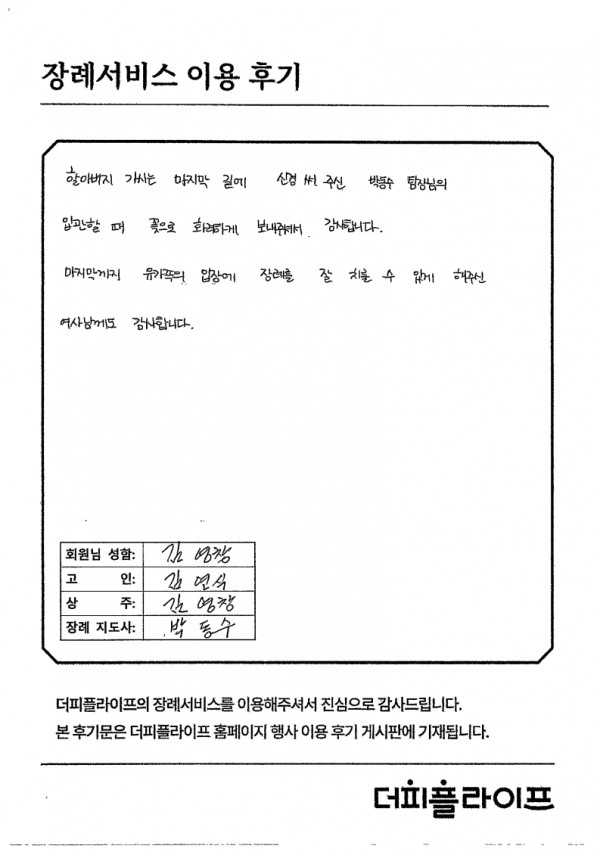 장례서비스 이용 후기
할아버지 가시는 마지막 길에 신경 써 주신 박동수 팀장님의
입관할 때 꽃으로 화려하게 보내주셔서 감사합니다.
마지막까지 유가족의 입장에 장례를 잘 치를 수 있게 해주신
여사님께도 감사합니다.
회원님 성함: 김영창
고 인: 김연식
상 주: 김영창
장례 지도사: 박동수
더피플라이프의 장례서비스를 이용해주셔서 진심으로 감사드립니다.
본 후기문은 더피플라이프 홈페이지 행사 이용 후기 게시판에 기재됩니다.
더피플라이프